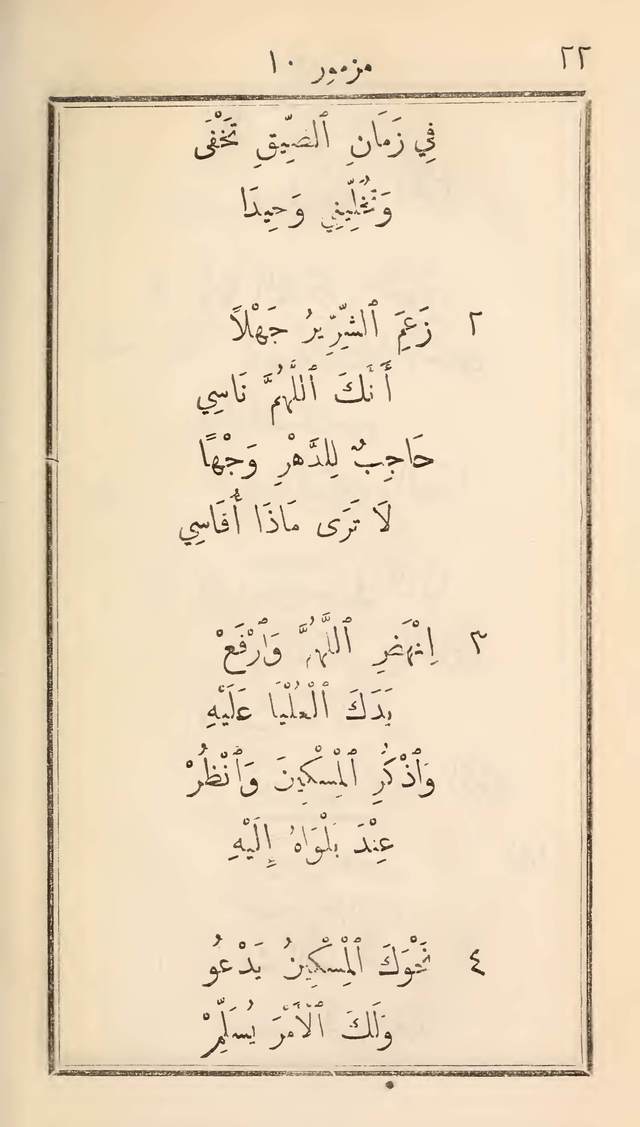 ٢٢ مزمور ١٠
فِي زَمَانِ ٱلضِّيقِ تَخْفَى
وَتُخَلِّينِي وَحِيدَا
٢ زَعِمَ ٱلشِّرِّيرُ جَهْلًا
أَنَّكَ ٱللّٰهُمَّ نَاسِي
حَاجِبٌ لِلدَّهْرِ وَجْهًا
لَا تَرَى مَاذَا أُقَاسِي
٣ اِنْهَضِ ٱللّٰهُمَّ وَٱرْفَعْ
يَدَكَ ٱلْعُلْيَا عَلَيْهِ
وَٱذْكُرِ ٱلْمِسْكِينَ وَٱنْظُرْ
عِنْدَ بَلْوَاهُ إِلَيْهِ
٤ نَحْوَكَ ٱلْمِسْكِينُ يَدْعُو
وَلَكَ ٱلْأَمْرَ يُسَلِّمْ